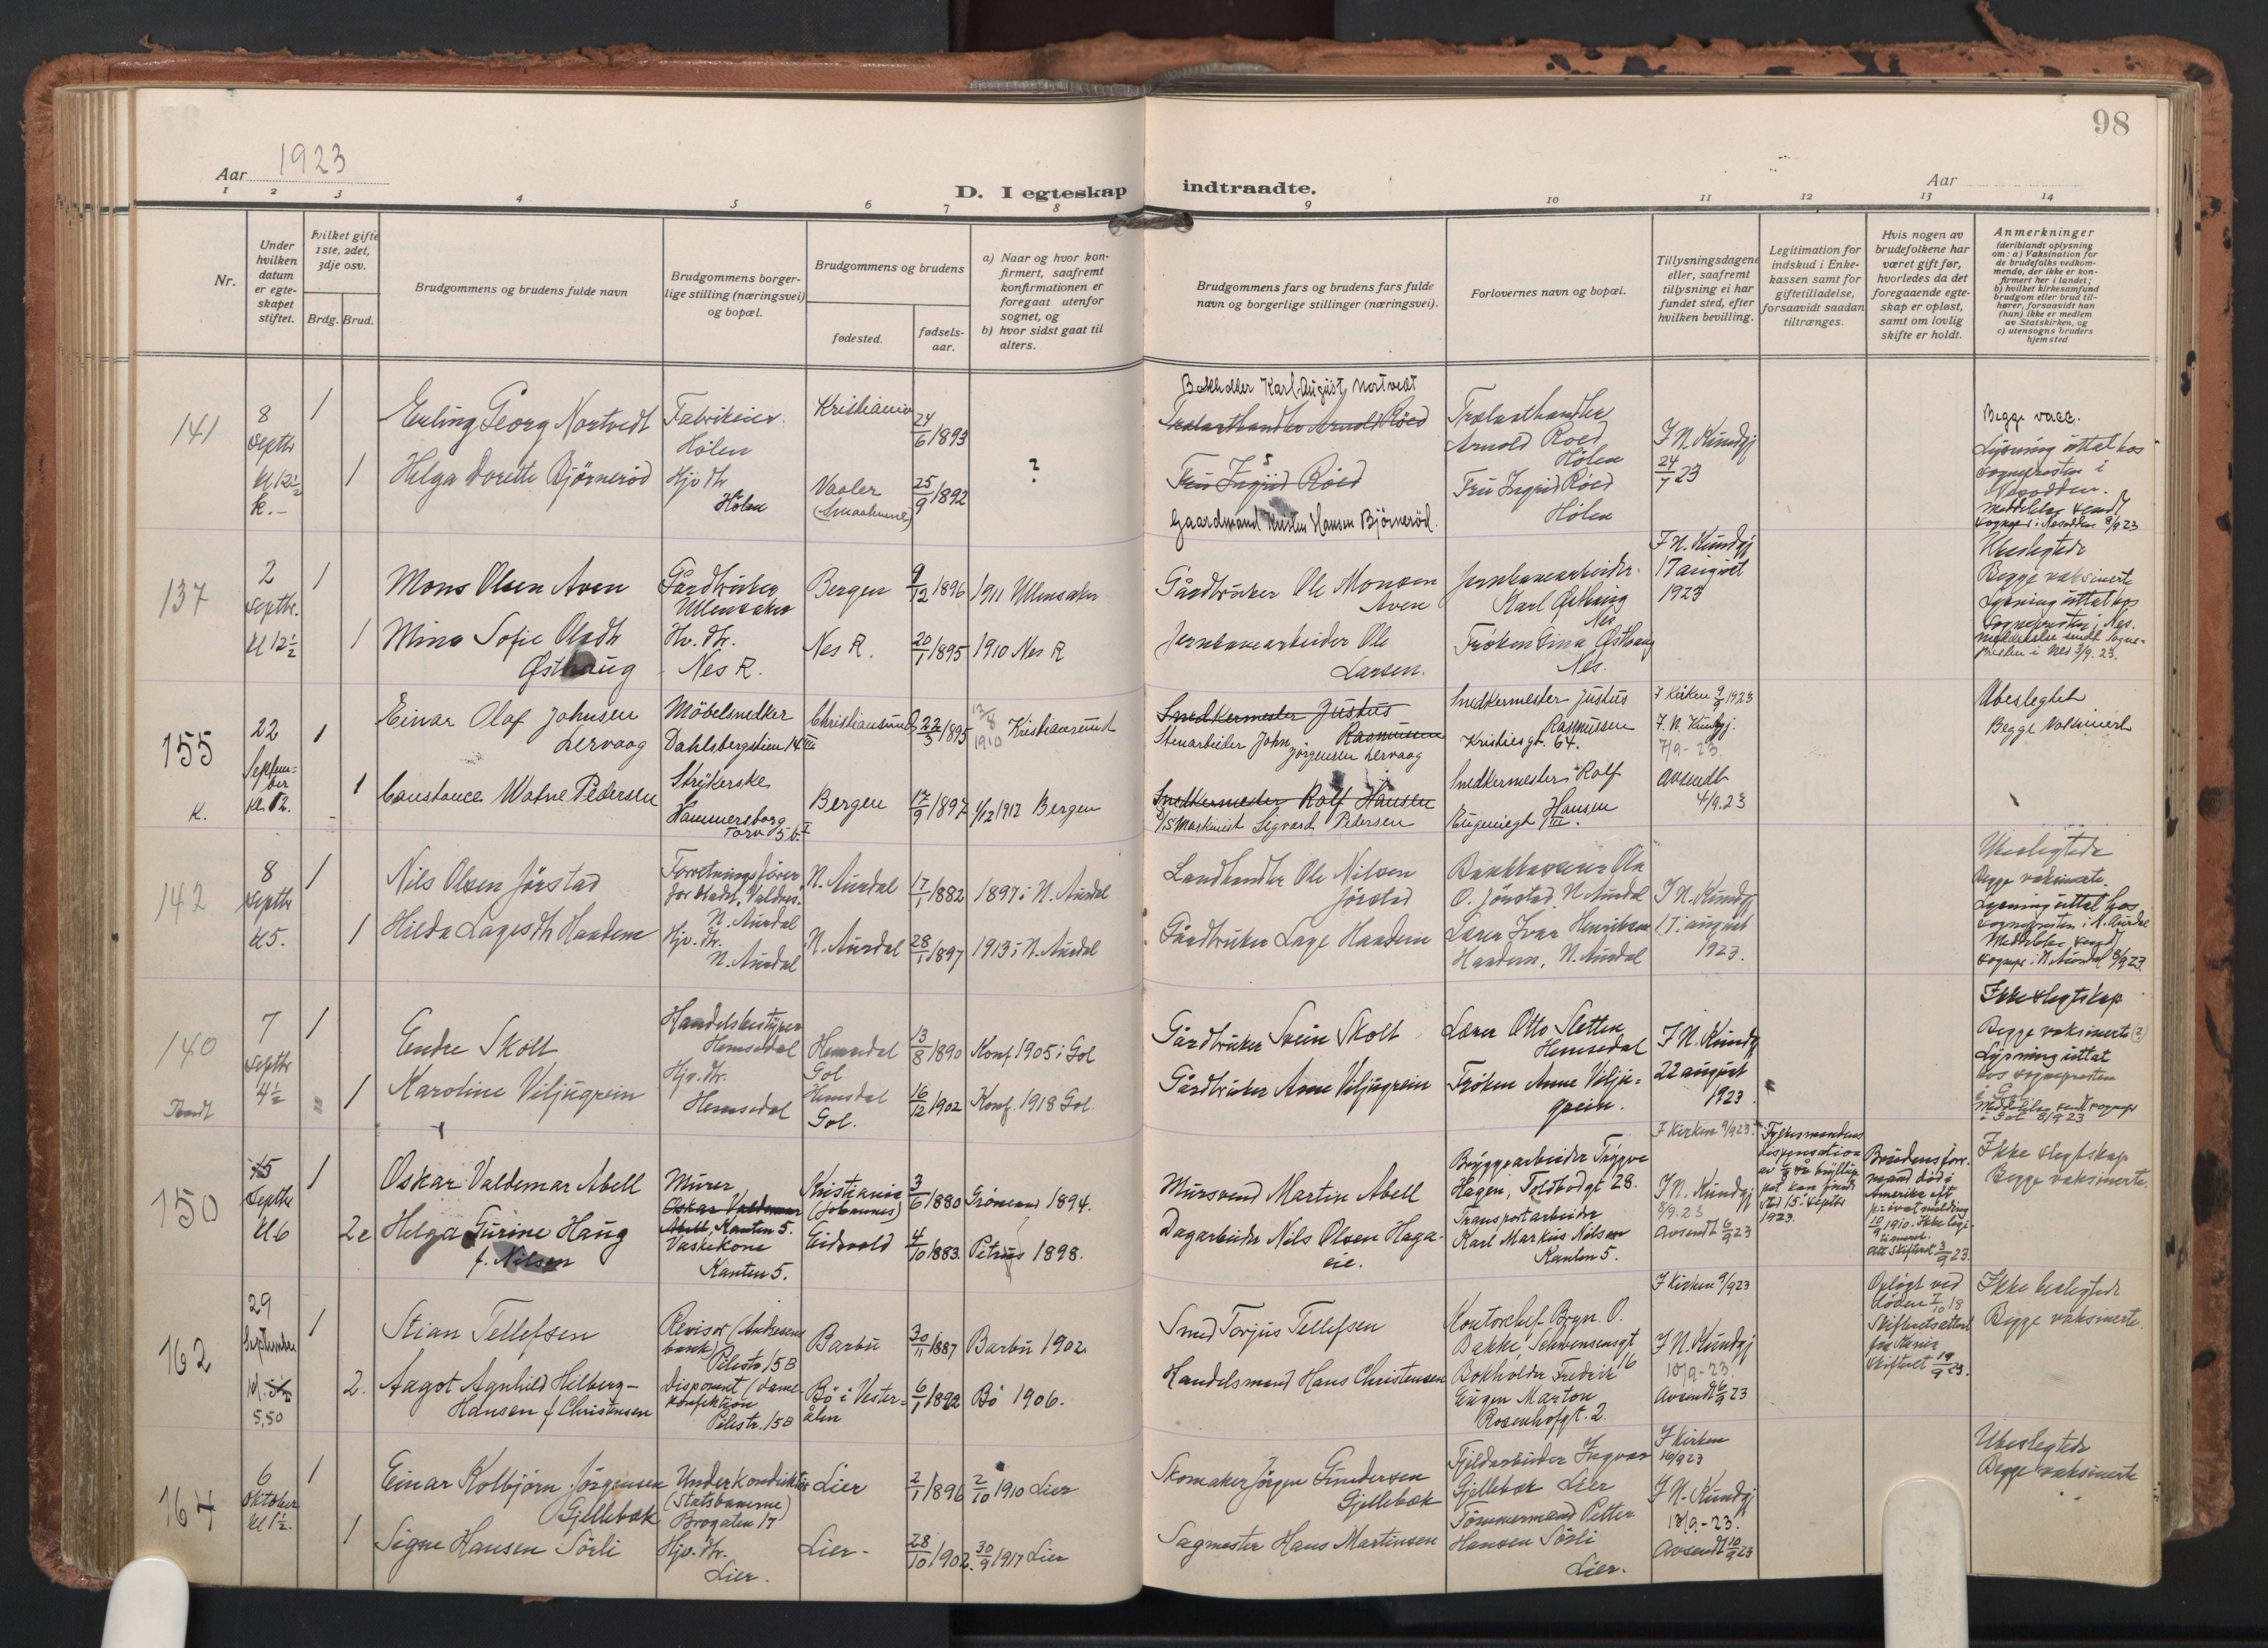 98
Aar 1923
Aar
D. I egteskap indtraadte.
1 2 3 4 5 6 7 8 9 10 11 12 13 14
Nr.
Under hvilken datum er egteskapet stiftet.
Hvilket gifte 1ste, 2det, 3dje osv.
Brdg. Brud.
Brudgommens og brudens fulde navn
Brudgommens borgerlige stilling (næringsvei) og bopæl.
Brudgommens og brudens
fødested.
fødselsaar.
a) Naar og hvor konfirmert, saafremt konfirmationen er foregaat utenfor sognet, og
b) hvor sidst gaat til alters.
Brudgommens fars og brudens fars fulde navn og borgerlige stillinger (næringsvei).
Forlovernes navn og bopæl.
Tillysningsdagene eller, saafremt tillysning ei har fundet sted, efter hvilken bevilling.
Legitimation for indskud i Enkekassen samt for giftetilladelse, forsaavidt saadan tiltrænges.
Hvis nogen av brudefolkene har været gift før, hvorledes da det foregaaende egteskap er opløst, samt om lovlig skifte er holdt.
Anmerkninger (deriblandt oplysning om: a) Vaksination for de brudefolks vedkommende, der ikke er konfirmert her i landet; b) hvilket kirkesamfund brudgom eller brud tilhører, forsaavidt han (hun) ikke er medlem av Statskirken, og c) utensogns bruders hjemsted
141
8 Septbr Kl 12½ K.-
1
Erling Georg Nortvedt
Fabrikeier Hølen
Kristiania
24/6 1893
Bokholder Karl August Nortvedt
Trælasthandler Arnold Røed
Trælasthandler Arnold Røed Hølen
1
Helga Dorette Bjørnerød
Hjv. dtr Hølen
Vaaler (Smaalenene)
25/9 1892
?
Fru Ingrid Røed
Gaardmand Kristen Hansen Bjørnerød.
Fru Ingrid Røed Hølen
I N. Kundgj 24/7 23
Begge vacc.
Lysning uttat hos sognepresten i Nesodden.
Meddelelse sendt sognepr. i Nesodden 9/9 23
137
2 Septbr. Kl 12½
1
Mons Olsen Aven
Gårdbruker Ullensaker
Bergen
9/12 1896
1911 Ullensaker
Gårdbruker Ole Monsen Aven
Jernbanearbeider Karl Østhaug Nes
I N. Kundgj 17 august 1923
1
Mina Sofie Olsdtr Østhaug
Hv. dtr. Nes R.
Nes R.
20/1 1895
1910 Nes R
Jernbanearbeider Ole Larsen.
Frøken Lina Østhaug Nes.
Ubeslegtede
Begge vaksinerte
Lysning uttat hos sognepresten i Nes.
Meddelelse sendt Sognepresten i Nes 3/9. 23.
155
22 September kl. 12. K.
1
Einar Olaf Johnsen Lervaag
Møbelsnedker Dahlsbergstien 14 III
Christiansund
22/3 1895
12/8 1910 Kristiansund
Snedkermester Justus Rasmussen
Stenarbeider John Jørgensen Lervaag
Snedkermester Justus Rasmussen Kristiesgt. 64.
I Kirken 9/9 1923
I. N. Kundgj. 7/9-23.
Avsendt 4/9.23
1
Constance Watne Pedersen
Strykerske Hammersborg Torv 5 b. I
Bergen
17/9 1897
1/12 1912 Bergen
Snedkermester Rolf Hansen
D/S Maskinist Sigvard Pedersen
Snedkermester Rolf Hansen Eugeniegt
Ubeslegtet
Begge Vaksinert
142
8 Septbr Kl 5.
1
Nils Olsen Jørstad
Forretningsfører for bladet "Valdres" N. Aurdal
N. Aurdal
17/1 1882
1897 i N. Aurdal
Landhandler Ole Nilsen Jørstad
Bankkasserer Ola O. Jørstad, N. Aurdal
I N. Kundgj 17. august 1923.
1
Hilda Lagesdtr Haadem
Hjv. dtr. N. Aurdal
N. Aurdal
28/1 1897
1913 i N. Aurdal
Gårdbruker Lage Haadem
Lærer Ivar Henriksen Haadem, N. Aurdal
Ubeslegtede
Begge vaksinerte.
Lysning uttat hos sognepresten i N. Aurdal
Meddelelse sendt sognepr. i N Aurdal 9/9 23.
140
7 Septbr 4½
1
Endre Skolt
Handelsbestyrer Hemsedal
Hemsedal Gol
13/8 1890
Konf 1905 i Gol
Gårdbruker Svein Skolt
Lærer Otto Sletten Hemsedal
I N. Kundgj 22 august 1923
1
Karoline Viljugrein
Hjv. dtr. Hemsedal
Hemsedal Gol.
16/12 1902
Konf. 1918 Gol.
Gårdbruker Arne Viljugrein
Frøken Anne Viljugrein.
Ikke slegtskap
Begge vaksinerte (?)
Lysning uttat hos sognepresten i Gol
Meddelelse sendt sognepr i Gol 8/9 23
150
15 Septbr Kl 6
1
Oskar Valdemar Abell
Murer Oskar Valdemar Abell, Kanten 5.
Kristiania (Johannes)
3/6 1880
Grønland 1894.
Mursvend Martin Abell
Bryggearbeider Trygve Hagen, Toldbodgt 28.
I Kirken 9/9 23.
I N. Kundgj 8/9.23
Avsendt 6/9 23
2e
Helga Gurine Haug f. Nilsen
Vaskekone Kanten 5.
Eidsvold
4/10 1883.
Petrus 1898.
Dagarbeider Nils Olsen Hagaeie.
Transportarbeider Karl Markus Nilsen Kanten 5.
Fylkesmandens dispensation av 6/9 får bryllup kan finde sted 15. septbr 1923.
Brudens forr. mand død i Amerika eft privat melding 10/9 1910. Ikke legitimeret. Att Skifteret 3/9 23.
Ikke slegtskap
Begge vaksinerte.
162
29 September kl. 5½ 5,50
1
Stian Tellefsen
Revisor (Andresens bank) Pilestr 15B
Barbu
30/11 1887
Barbu 1902.
Smed Torjus Tellefsen
Kontorchef Bryn. O. Bakke, Schwensensgt 16
I Kirken 9/9 23
I N. Kundgj 10/9-23.
Avsendt 6/9 23
2.
Aagot Agnhild Hilberg-Hansen f Christensen
Disponent (damekonfektion Pilestr. 15B
Bø i Vesterålen
6/1 1892
Bø 1906.
Handelsmand Hans Christensen
Bokholder Fredrik Eugen Marton Rosenhofgt. 2.
Opløst ved døden 7/10 18
Skifteretsattest fra Kania Skifteret 19/9 23.
Ikke beslegtede
Begge vaksinerte.
164
6 Oktober Kl 1½.
1
Einar Kolbjørn Jørgensen Gjellebæk
Underkonduktør (Statsbanerne) Brogaten 17
Lier
2/1 1896
2/10 1910 Lier
Skomaker Jørgen Gundersen Gjellebæk
Fjeldarbeider Ingvar Gjellebæk Lier
I Kirken 16/9 23
I N. Kundgj 13/9-23.
Avsendt 10/9 23
1
Signe Hansen Sørli
Hjv. dtr. Lier.
Lier.
28/10 1902.
30/9 1917 Lier
Sagmester Hans Martinsen
Tømmermand Petter Hansen Sørli Lier.
Ubeslegtede
Begge vaksinerte